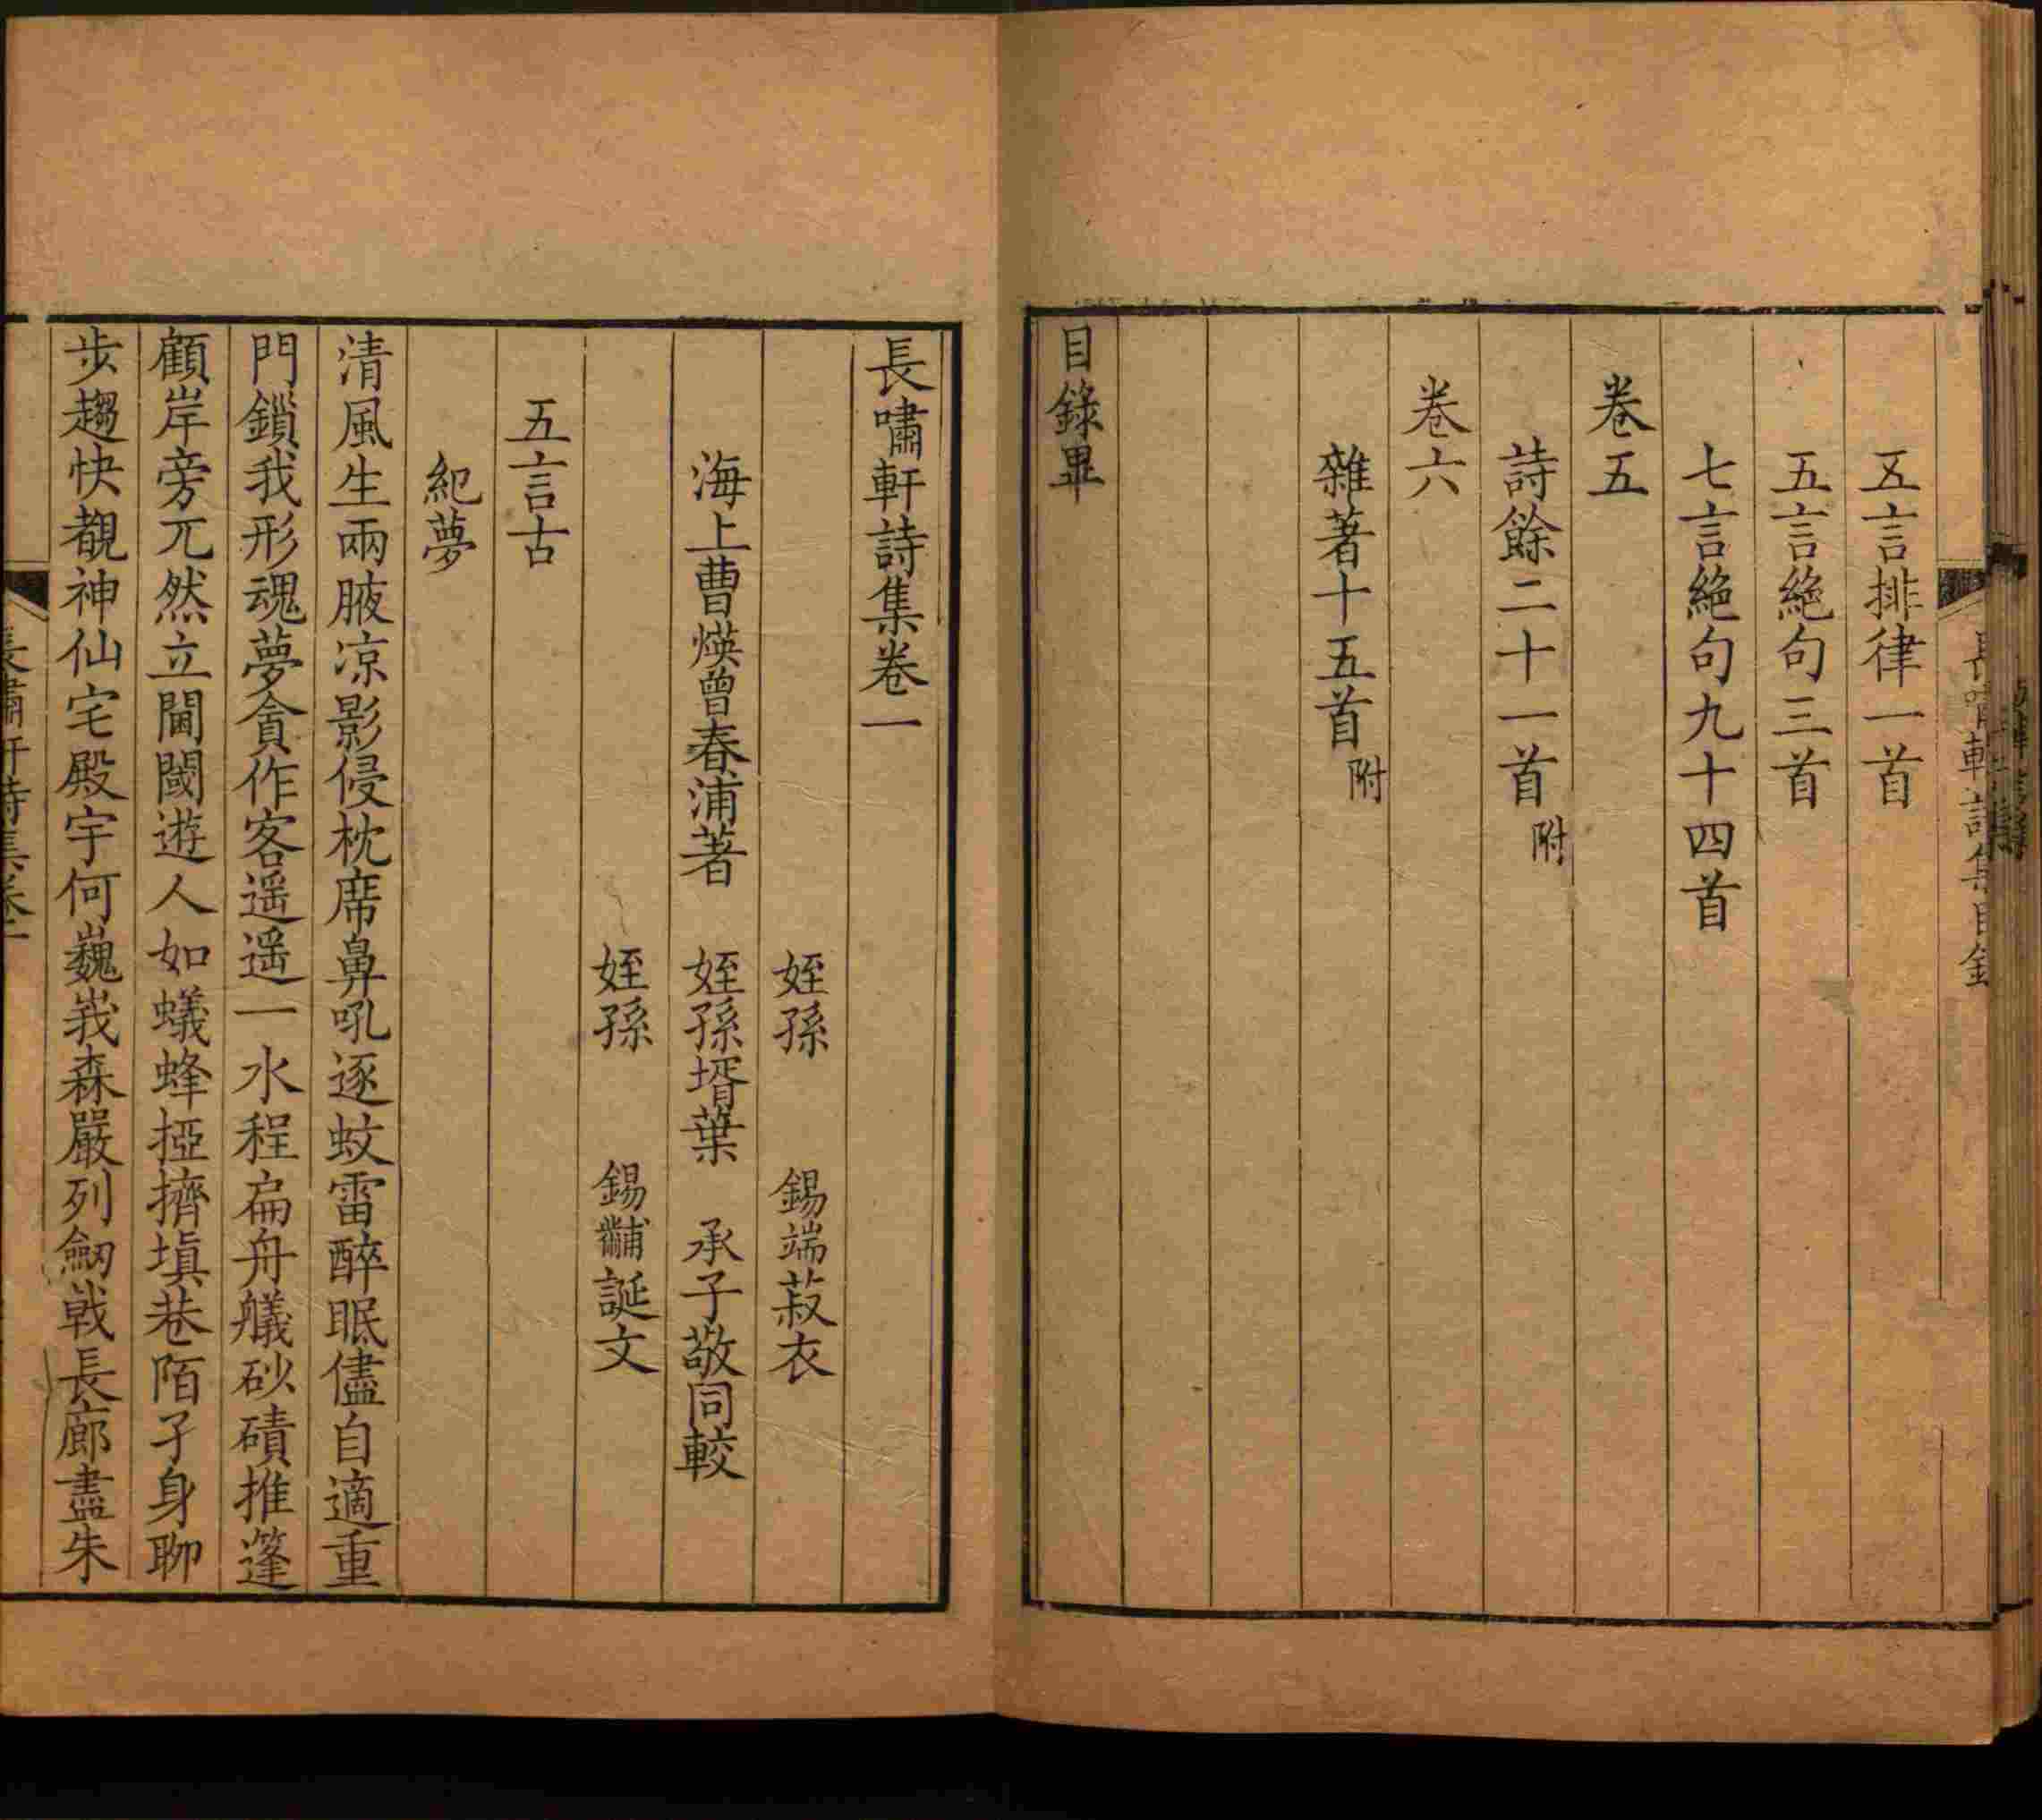 長嘯軒詩集目錄
五言排律一首
五言絕句三首
七言絕句九十四首
卷五
詩餘二十一首附
卷六
雜著十五首附
目錄畢
長嘯軒詩集卷一
姪孫 錫端菽衣
海上曹煐曾春浦著 姪孫壻葉 承子敬同較
姪孫 錫黼誕文
五言古
紀夢
清風生兩腋凉影侵枕席鼻吼逐蚊雷醉眠儘自適重
門鎖我形魂夢貪作客遥遥一水程扁舟艤砂磧推篷
顧岸旁兀然立闤闠遊人如蟻蜂掗擠塡巷陌孑身聊
步趨快覩神仙宅殿宇何巍峩森嚴列劒戟長廊盡朱
長嘯軒詩集卷一